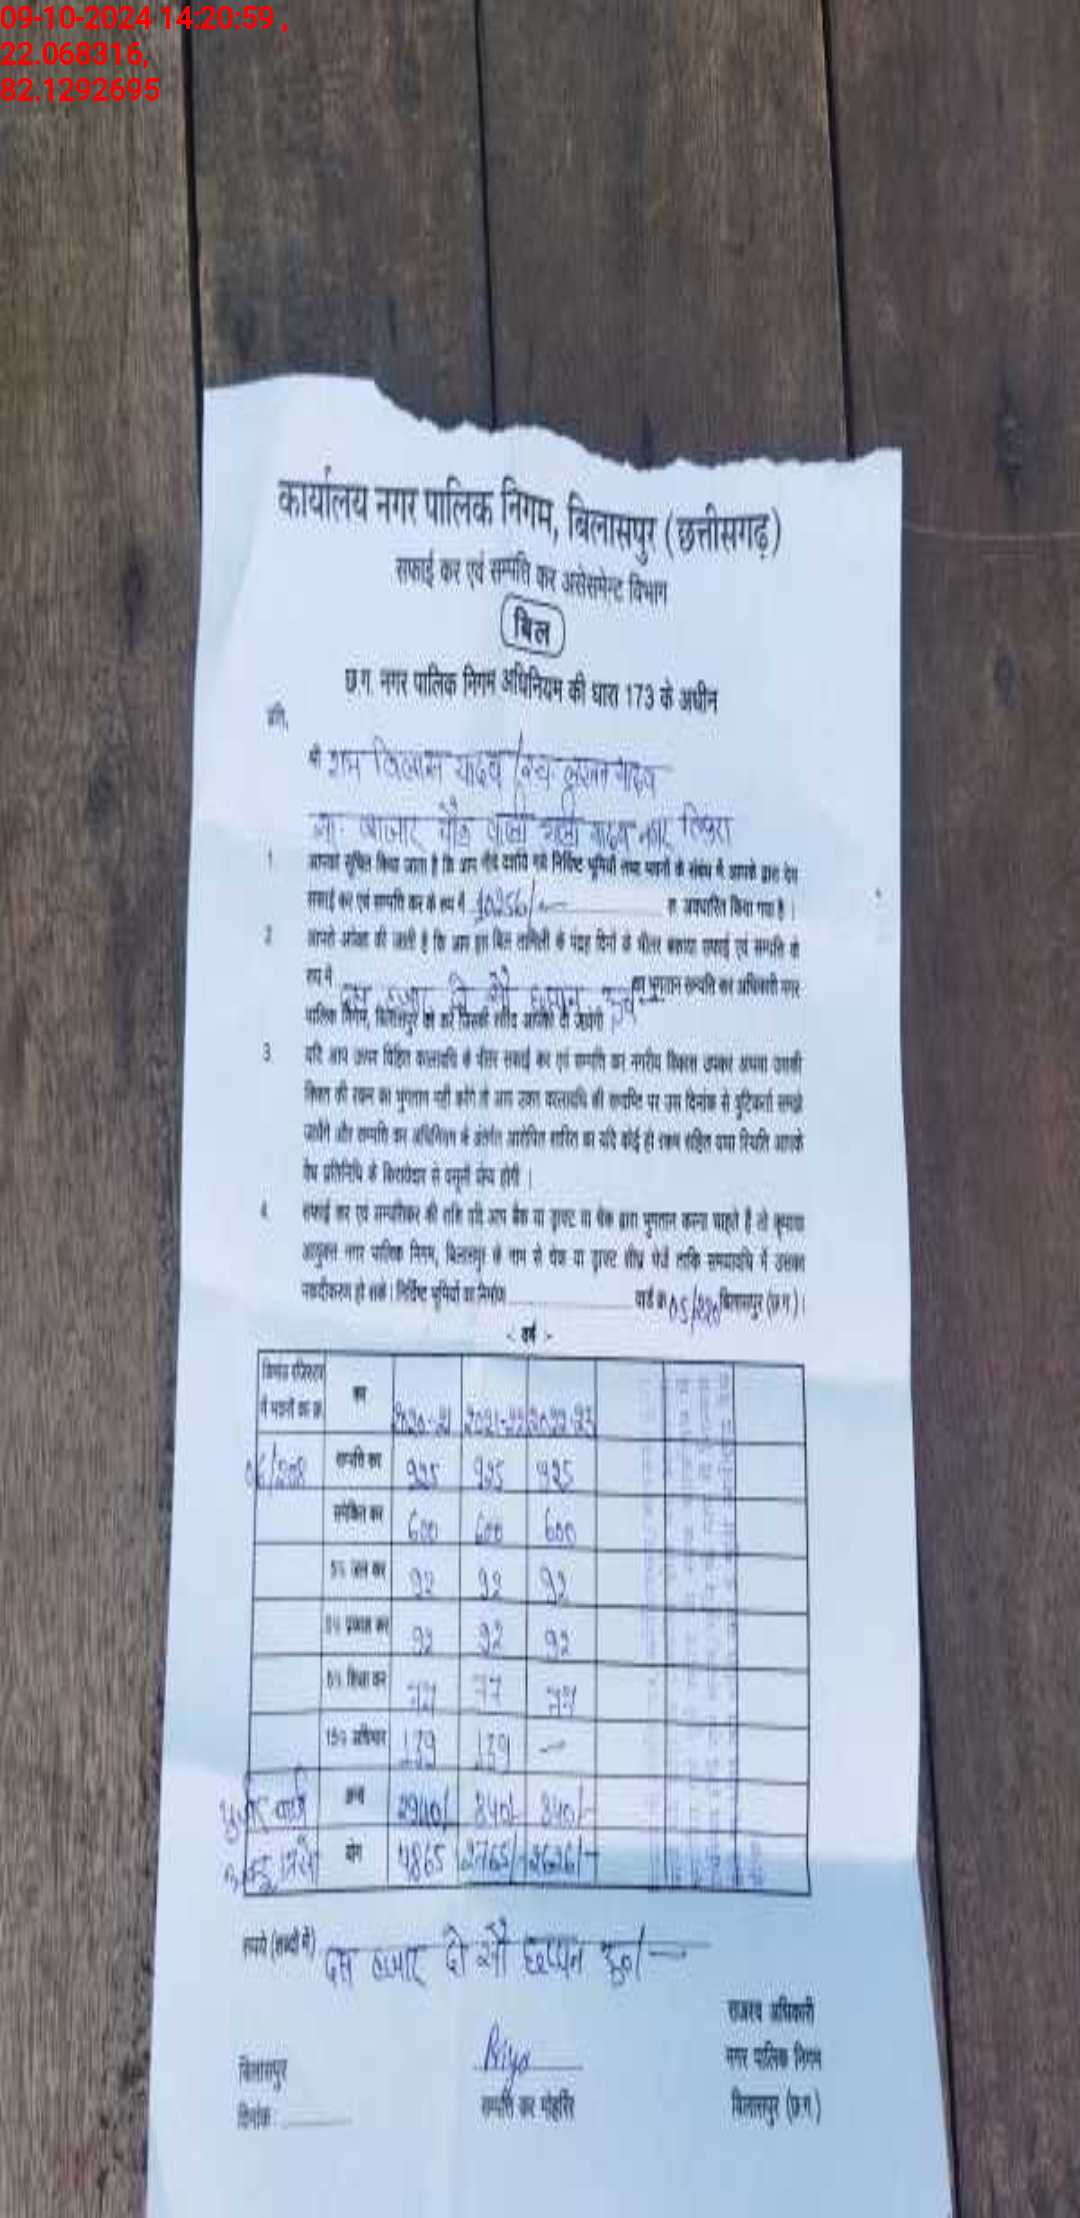 09-10-2024 14:20:59 ,
22.068316,
82.1292695
कार्यालय नगर पालिक निगम, बिलासपुर (छत्तीसगढ़)
सफाई कर एवं सम्पत्ति कर असेसमेन्ट विभाग
बिल
छ.ग. नगर पालिक निगम अधिनियम की धारा 173 के अधीन
प्रति,
श्री राम विलास यादव / स्व. लखन यादव
बाजार चौक यादव नगर तिफरा
1. आपको सूचित किया जाता है कि आप नीचे दर्शाये गये निर्दिष्ट भूमियों तथा भवनों के संबंध में आपके द्वारा देय
सफाई कर एवं सम्पत्ति कर के रूप में 10256/- रु. अवधारित किया गया है ।
2. आपसे अपेक्षा की जाती है कि आप इस बिल तामिली के पंद्रह दिनों के भीतर बकाया सफाई एवं सम्पत्ति के
रूप में दस हजार दो सौ छप्पन रु० का भुगतान सम्पत्ति कर अधिकारी नगर
पालिक निगम, बिलासपुर को करें जिसकी रसीद आपको दी जायेगी ।
3. यदि आप ऊपर विहित कालावधि के भीतर सफाई कर एवं सम्पत्ति कर नगरीय विकास उपकर अथवा उसकी
किस्त की रकम का भुगतान नहीं करेंगे तो आप उक्त कालावधि की समाप्ति पर उस दिनांक से त्रुटिकर्ता समझे
जायेंगे और सम्पत्ति कर अधिनियम के अंतर्गत आरोपित शास्ति का यदि कोई हो रकम सहित यथा स्थिति आपके
वैध प्रतिनिधि के किरायेदार से वसूली योग्य होगी ।
4. सफाई कर एवं सम्पत्तिकर की राशि यदि आप बैंक या ड्राफ्ट या चेक द्वारा भुगतान करना चाहते हैं तो कृपया
आयुक्त नगर पालिक निगम, बिलासपुर के नाम से चेक या ड्राफ्ट शीघ्र भेजें ताकि समयावधि में उसका
नकदीकरण हो सके । निर्दिष्ट भूमियों या निर्माण वार्ड क्र. 05/220 बिलासपुर (छ.ग.) ।
-: वर्ष :-
डिमांड रजिस्टर में भवनों का क्र. कर 2020-21 2021-22 2022-23
सम्पत्ति कर 925 925 925
समेकित कर 600 600 600
5% जल कर 92 92 92
5% प्रकाश कर 92 92 92
5% शिक्षा कर 77 77 77
15% अधिभार 139 139 -
अन्य 2940/- 840/- 840/-
योग 4865 2765/- 2626/-
रूपये (शब्दों में) दस हजार दो सौ छप्पन रु०/-
राजस्व अधिकारी
बिलासपुर Riya नगर पालिक निगम
दिनांक सम्पत्ति कर मोहर्रिर बिलासपुर (छ.ग.)